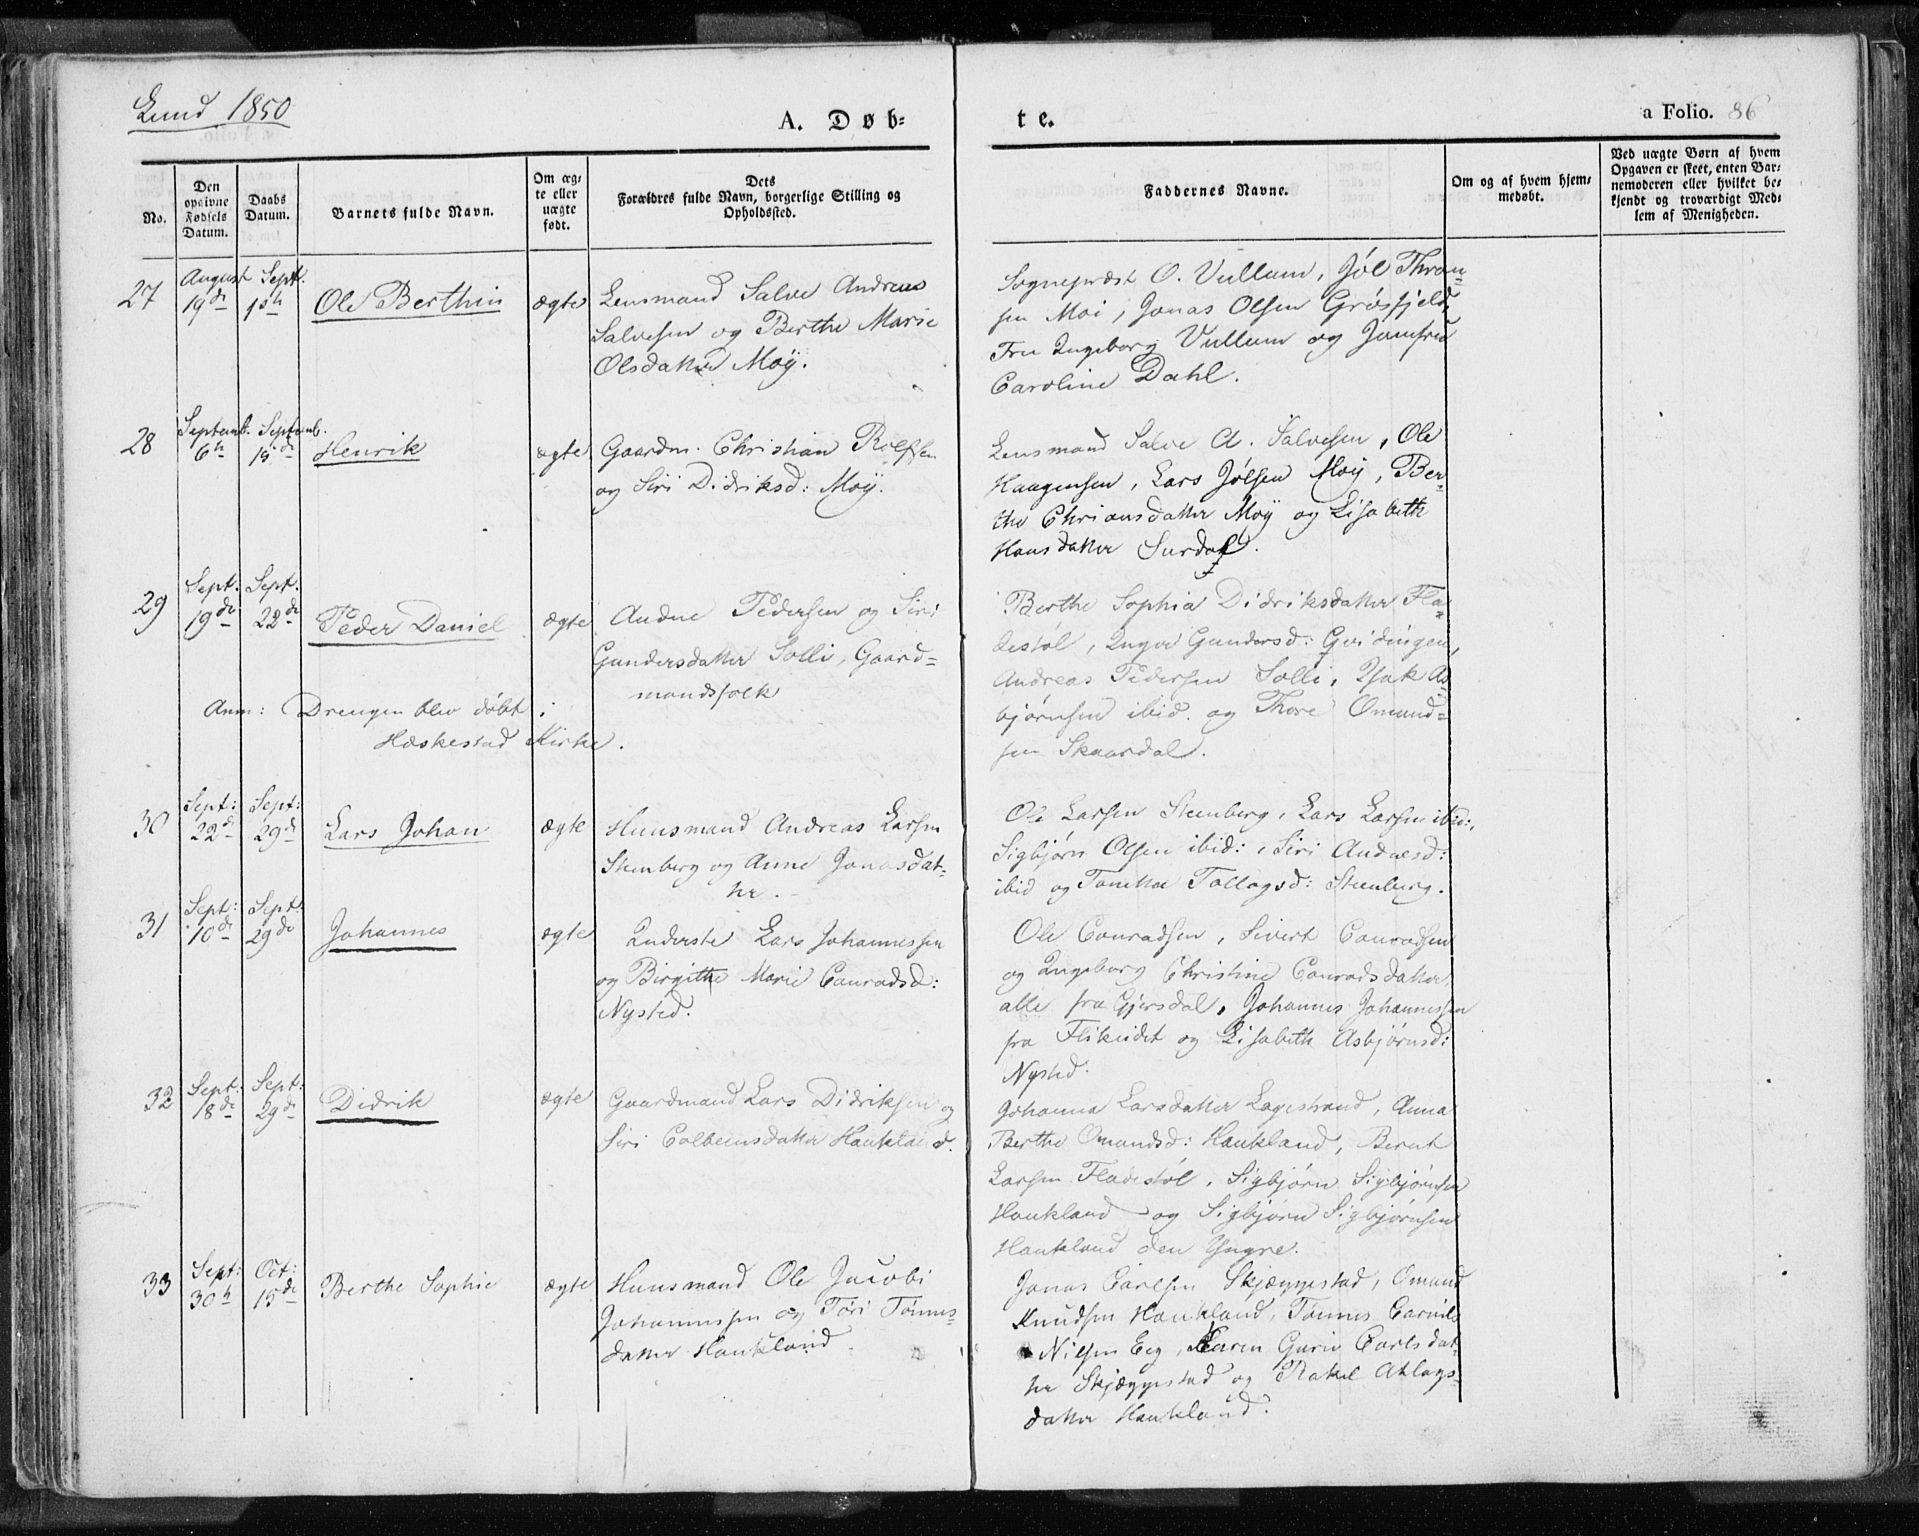 Lund 1850
A. Døb-
te.
a Folio. 86
No.
Den
opgivne
Fødsels
Datum.
Daabs
Datum.
Barnets fulde Navn.
Om æg-
te eller
uægte
født.
Dets
Forældres fulde Navn, borgerlige Stilling og
Opholdssted.
Faddernes Navne.
Om og af hvem hjem-
medøbt.
Ved uægte Børn af hvem
Opgaven er skeet, enten Bar-
nemoderen eller hvilket be-
kjendt og troværdigt Med-
lem af Menigheden.
27
August
19de
Sept.
1ste
Ole Berthin
ægte
Lensmand Salve Andreas
Salvesen og Berthe Marie
Olsdatter Moÿ.
Sognepræst O. Vullum, Jøl Thron-
sen Moi, Jonas Olsen Grøsfjeld,
Fru Ingeborg Vullum og Jomfru
Caroline Dahl.
28
Septemb.
6te
Septemb.
15de
Henrik
ægte
Gaardm. Christian Rolfsen
og Siri Didriksd: Moÿ.
Lensmand Salve A. Salvesen, Ole
Haagensen, Lars Jølsen Moÿ, Ber-
the Chriansdatter Moÿ og Lisabeth
Hansdatter Surdal.
29
Sept:
19de
Sept.
22de
Peder Daniel
ægte
Andne Pedersen og Siri
Gundersdatter Solli, Gaard-
mandsfolk
Anm: Drengen blev døbt i
Heskestad Kirke.
Berthe Sophia Didriksdatter Fla-
destøl, Inger Gundersd: Gvidingen,
Andreas Pedersen Solli, Isak As-
bjørnsen ibid. og Thore Omund-
sen Skaardal.
30
Sept:
22de
Sept:
29de
Lars Johan
ægte
Huusmand Andreas Larsen
Steenberg og Anne Jonasdat-
ter.
Ole Larsen Steenberg, Lars Larsen ibid:,
Sigbjørn Olsen ibid:, Siri Andnesd:
ibid og Tonette Tollagsd: Steenberg.
31
Sept:
10de
Sept:
29de
Johannes
ægte
Inderste Lars Johannessen
og Birgithe Marie Conradsd:
Nysted.
Ole Conradsen, Sivert Conradsen
og Ingeborg Christine Conradsdatter
alle fra Gjersdal, Johannes Johannessen
fra Flikeidet og Lisabeth Asbjørnsd:
Nysted.
32
Sept:
18de
Sept:
29de
Didrik
ægte
Gaardmand Lars Didriksen og
Siri Colbeinsdatter Haukland.
Johanna Larsdatter Lagestrand, Anna
Berthe Omundsd: Haukland, Berent
Larsen Fladestøl, Sigbjørn Sigbjørnsen
Haukland og Sigbjørn Sigbjørnsen
Haukland den Yngre.
33
Sept:
30te
Oct:
15de
Berthe Sophie
ægte
Huusmand Ole Jacobi
Johannessen og Tøri Tønnes-
datter Haukland.
Jonas Carlsen Skjæggestad, Omund
Knudsen Haukland, Tønnes
Nilsen Eeg, Karen Gurie Carlsdat-
ter Skjæggestad og Rakel Atlags-
datter Haukland.